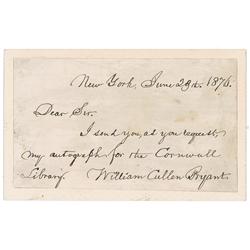 New York, June 29th. 1876.
Dear Sir.
I send you, as you request,
my autograph for the Cornwall
Library. William Cullen Bryant.